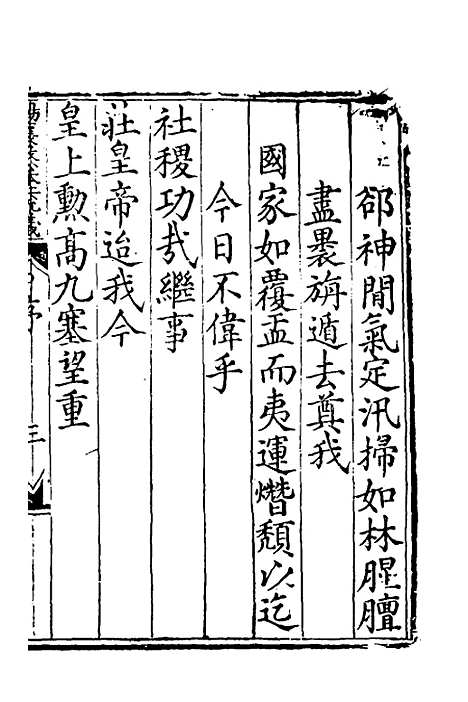 郤神閒氣定汛掃如林腥膻
盡褁旃遁去奠我
國家如覆盂而夷運熸頹以迄
今日不偉乎
社稷功㦲繼事
莊皇帝迨我今
皇上勲高九塞望重
三